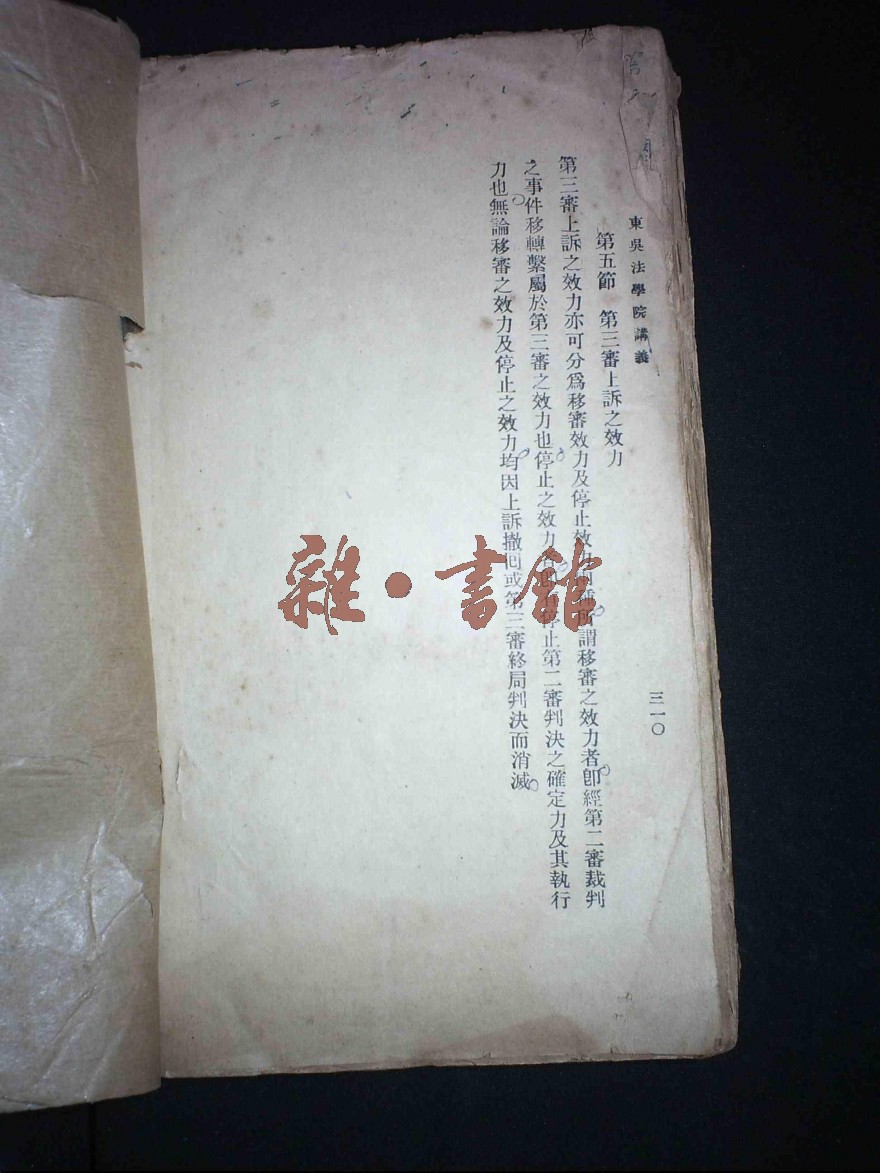 東吳法學院講義
三一〇
第五節　第三審上訴之效力
第三審上訴之效力亦可分爲移審效力及停止效力兩種所謂移審之效力者卽經第二審裁判
之事件移轉繫屬於第三審之效力也停止之效力者卽停止第二審判決之確定力及其執行
力也無論移審之效力及停止之效力均因上訴撤回或第三審終局判決而消滅
雜·書館